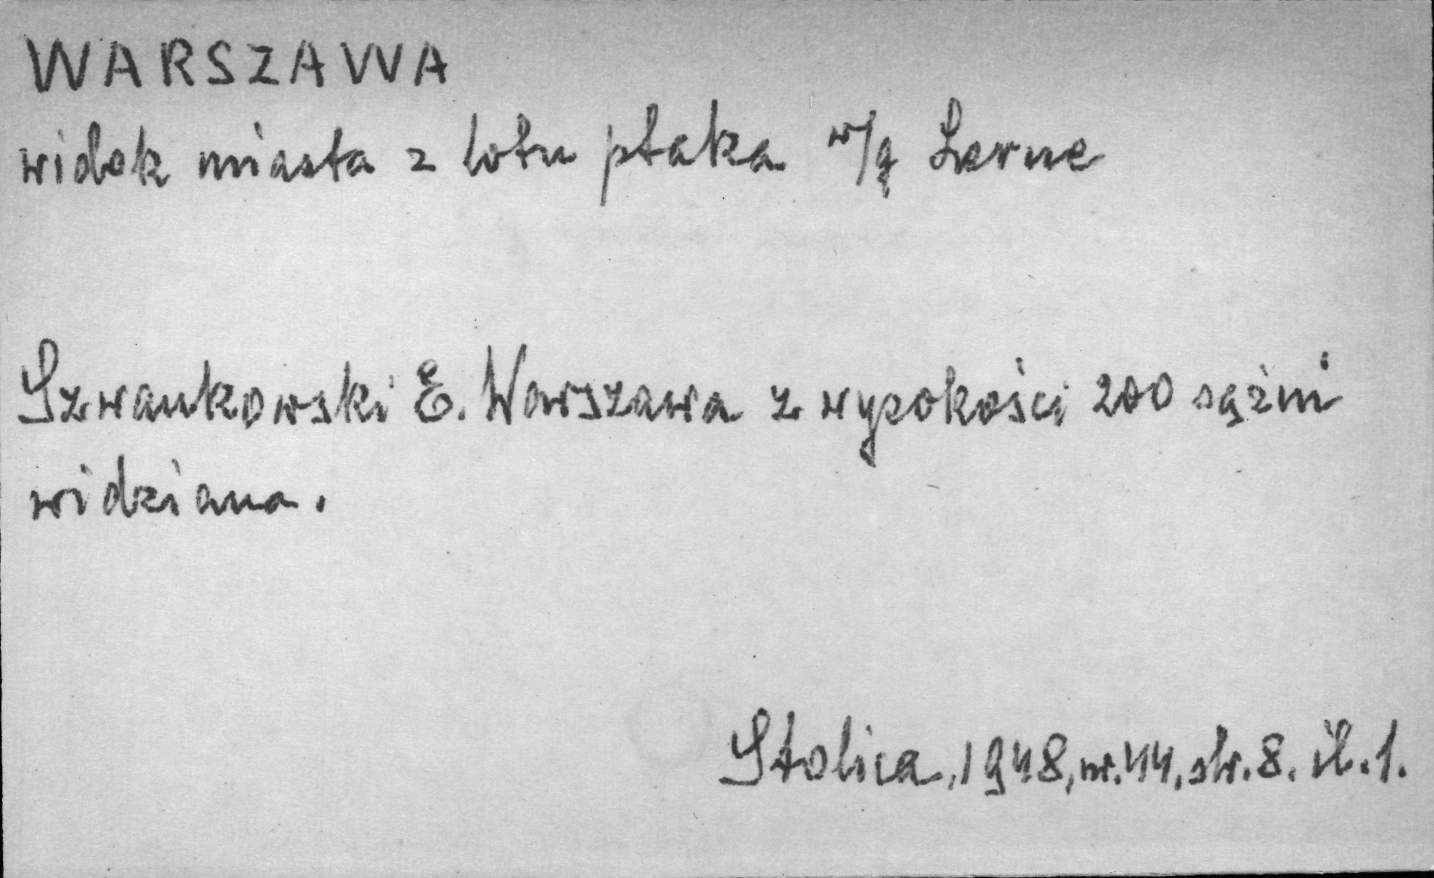 WARSZAWA
widok miasta z lotu ptaka w/g Lerue
Szwankowski E. Warszawa z wysokości 200 sążni
widziana.
Stolica, 1948, nr. 44, str. 8. il. 1.